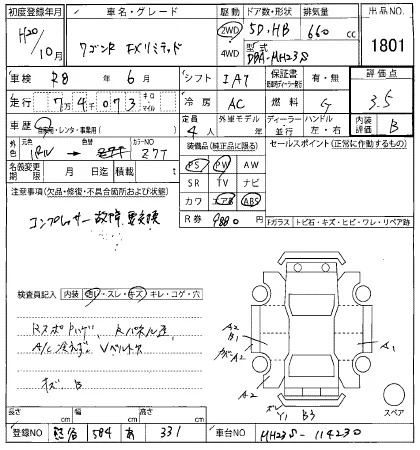 初度登録年月 車名・グレード 駆動 ドア数・形状 排気量 出品NO.
H20/10月 ワゴンR FXリミテッド 2WD 4WD 5D.HB 660cc 1801
型式 DBA-MH23S
車検 R8年 6月 シフト IAT 保証書 有・無 評価点
走行 7万4千073 キロ・マイル 冷房 AC 燃料 G 3.5
車歴 自家用・レンタ・事業用( ) 定員 4人 外車モデル 年 ディーラー・並行 ハンドル 左・右 内装評価 B
外色 元色 色替 カラーNO Z7T 装備品(純正品に限る) セールスポイント(正常に作動するもの)
名義変更期限 月 日迄 積載 t PS PW AW
注意事項(欠品・修復・不具合箇所および状態) SR TV ナビ
コンプレッサー故障 要交換 カワ エアB ABS
R券 9880円 Fガラス トビ石・キズ・ヒビ・ワレ・リペア跡
検査員記入 内装 ・スレ・キズ・キレ・コゲ・穴
A2
B1
A/C冷えず、Vベルト A2 A1
キズ、B A2
Y1 B3
スペア
長さ cm 幅 cm 高さ cm
登録NO 熊谷 584 あ 331 車台NO MH23S-114230